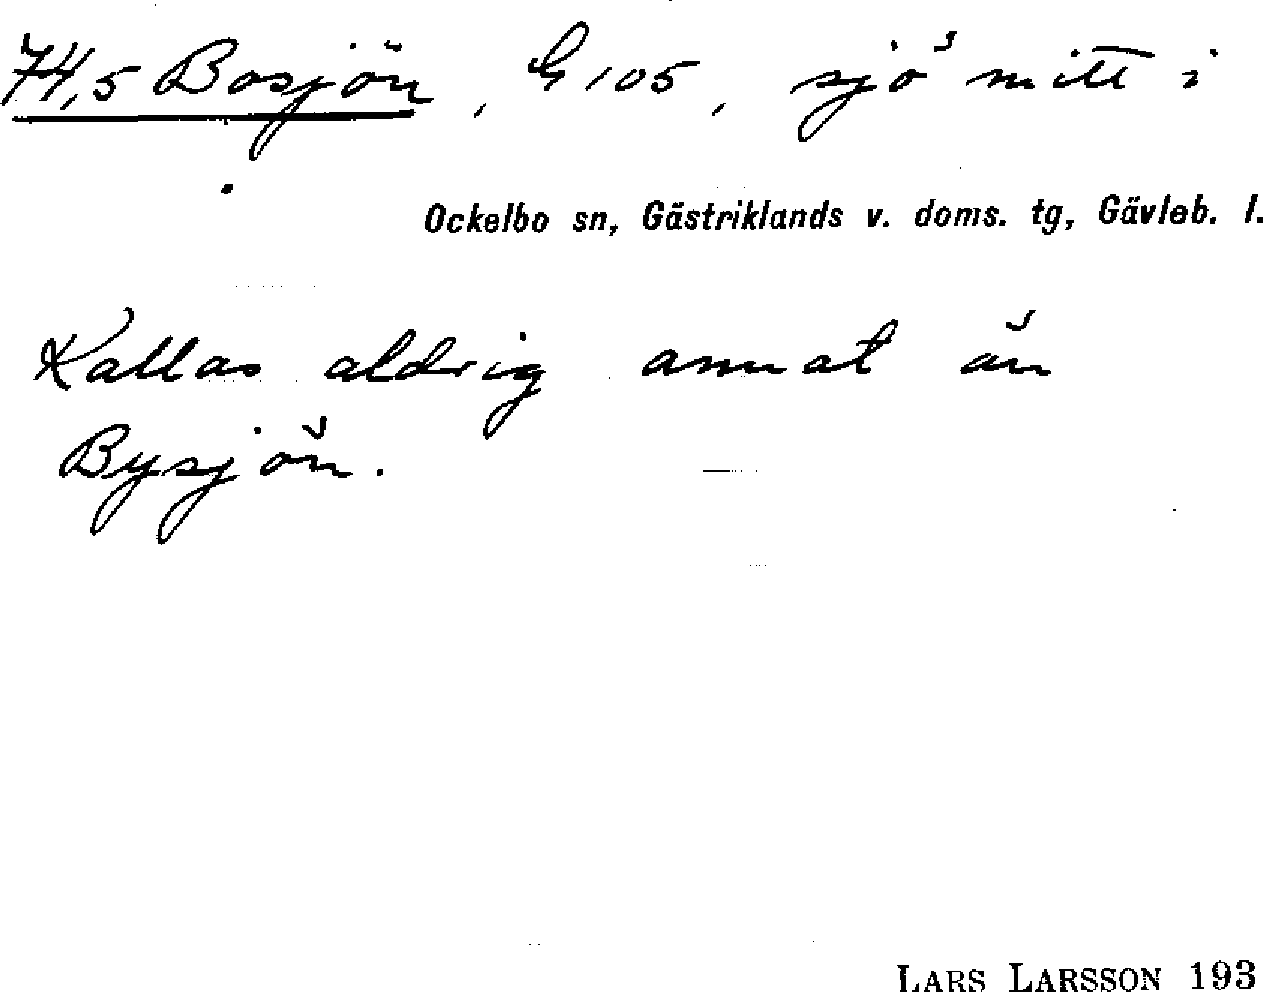 74,5 Bosjön, G 105, sjö mitt i
Ockelbo sn, Gästriklands v. doms. tg, Gävleb. l.
Kallas aldrig annat än
Bysjön.
LARS LARSSON 193